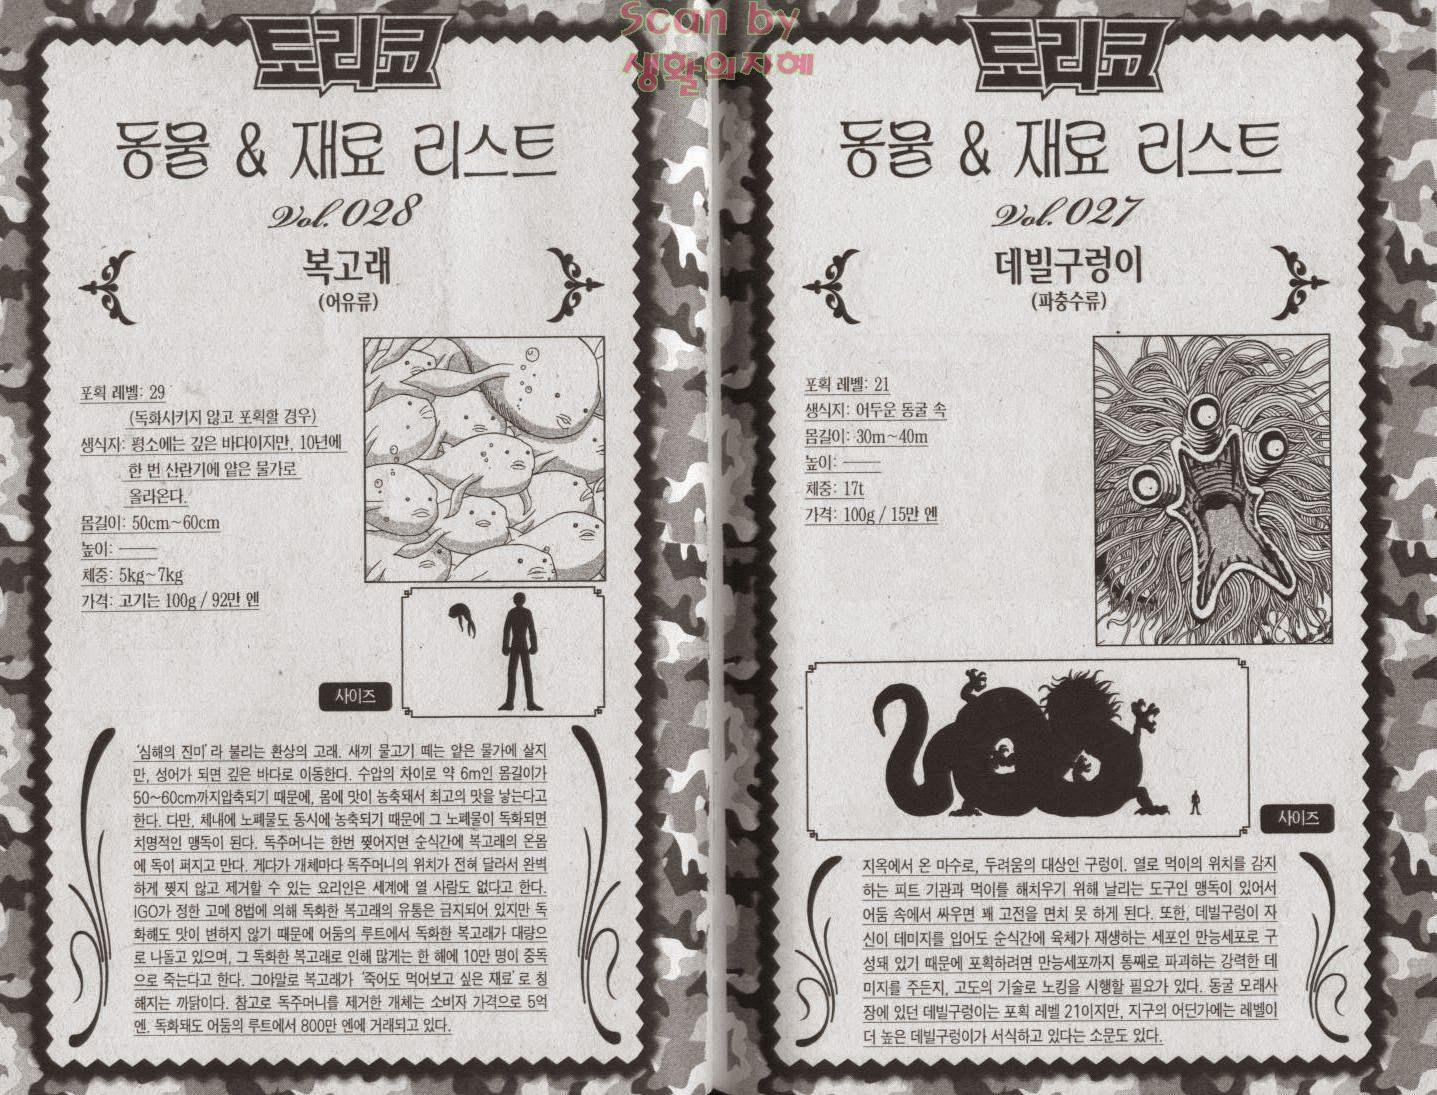 Scan by
생활의지혜
토리코
동물 & 재료 리스트
Vol. 028
복고래
(어유류)
포획 레벨: 29
(독화시키지 않고 포획할 경우)
생식지: 평소에는 깊은 바다이지만, 10년에
한 번 산란기에 얕은 물가로
올라온다.
몸길이: 50cm~60cm
높이: ——
체중: 5kg~7kg
가격: 고기는 100g / 92만 엔
사이즈
'심해의 진미'라 불리는 환상의 고래. 새끼 물고기 떼는 얕은 물가에 살지
만, 성어가 되면 깊은 바다로 이동한다. 수압의 차이로 약 6m인 몸길이가
50~60cm까지압축되기 때문에, 몸에 맛이 농축돼서 최고의 맛을 낳는다고
한다. 다만, 체내에 노폐물도 동시에 농축되기 때문에 그 노폐물이 독화되면
치명적인 맹독이 된다. 독주머니는 한번 찢어지면 순식간에 복고래의 온몸
에 독이 퍼지고 만다. 게다가 개체마다 독주머니의 위치가 전혀 달라서 완벽
하게 찢지 않고 제거할 수 있는 요리인은 세계에 열 사람도 없다고 한다.
IGO가 정한 고메 8법에 의해 독화한 복고래의 유통은 금지되어 있지만 독
화해도 맛이 변하지 않기 때문에 어둠의 루트에서 독화한 복고래가 대량으
로 나돌고 있으며, 그 독화한 복고래로 인해 많게는 한 해에 10만 명이 중독
으로 죽는다고 한다. 그야말로 복고래가 '죽어도 먹어보고 싶은 재료'로 칭
해지는 까닭이다. 참고로 독주머니를 제거한 개체는 소비자 가격으로 5억
엔. 독화돼도 어둠의 루트에서 800만 엔에 거래되고 있다.
토리코
동물 & 재료 리스트
Vol. 027
데빌구렁이
(파충수류)
포획 레벨: 21
생식지: 어두운 동굴 속
몸길이: 30m~40m
높이: ——
체중: 17t
가격: 100g / 15만 엔
사이즈
지옥에서 온 마수로, 두려움의 대상인 구렁이. 열로 먹이의 위치를 감지
하는 피트 기관과 먹이를 해치우기 위해 날리는 도구인 맹독이 있어서
어둠 속에서 싸우면 꽤 고전을 면치 못 하게 된다. 또한, 데빌구렁이 자
신이 데미지를 입어도 순식간에 육체가 재생하는 세포인 만능세포로 구
성돼 있기 때문에 포획하려면 만능세포까지 통째로 파괴하는 강력한 데
미지를 주든지, 고도의 기술로 노킹을 시행할 필요가 있다. 동굴 모래사
장에 있던 데빌구렁이는 포획 레벨 21이지만, 지구의 어딘가에는 레벨이
더 높은 데빌구렁이가 서식하고 있다는 소문도 있다.